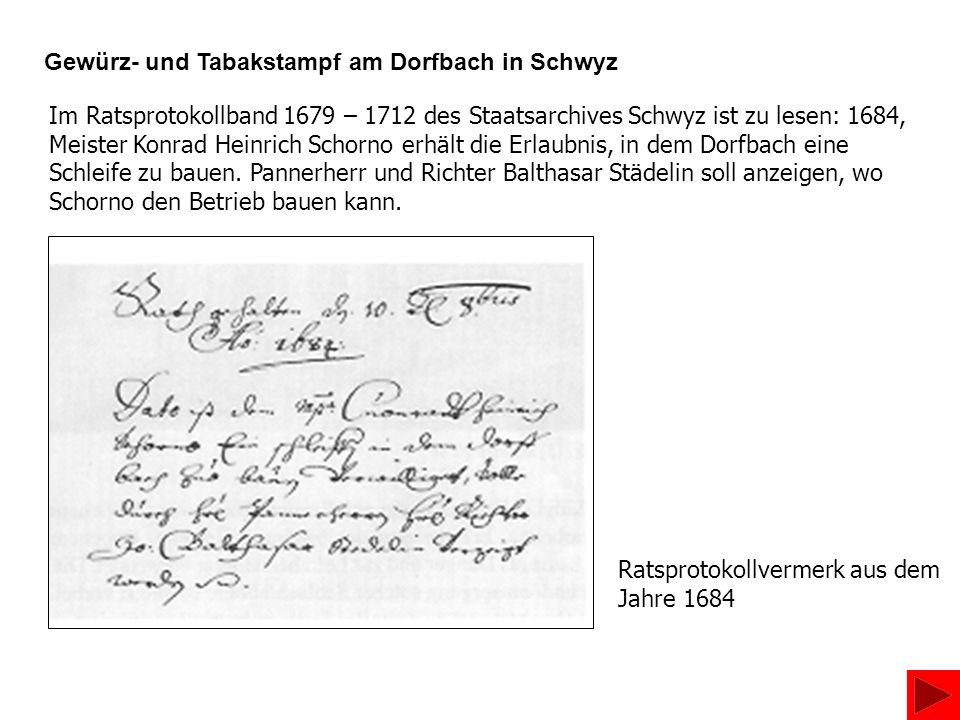 Gewürz- und Tabakstampf am Dorfbach in Schwyz
Im Ratsprotokollband 1679 – 1712 des Staatsarchives Schwyz ist zu lesen: 1684,
Meister Konrad Heinrich Schorno erhält die Erlaubnis, in dem Dorfbach eine
Schleife zu bauen. Pannerherr und Richter Balthasar Städelin soll anzeigen, wo
Schorno den Betrieb bauen kann.
Rath gehalten d. 10. 8bris
Ao: 1684.
Dato ist dem Mr. Cunonradt Heinrich
Schorno Ein schleiffe in dem dorff
bach zuo bauwen verwilliget, solle
durch Panerherrn Richter
Jo: Balthasar Stedelin verzeigt
werden
Ratsprotokollvermerk aus dem
Jahre 1684